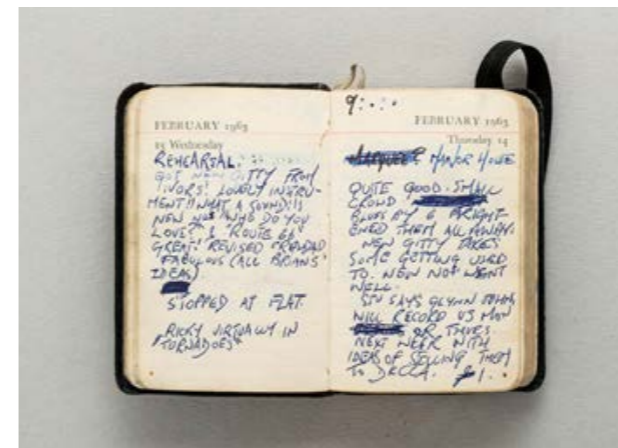 FEBRUARY 1963
Wednesday
REHEARSAL.
GOT NEW GITTY FROM
IVORS! LOVELY INSTRU-
MENT!! WHAT A SOUND!!!
NEW NOS "WHO DO YOU
LOVE" & "ROUTE 66"
GREAT! REVISED "CRAWDAD"
FABULOUS (ALL BRIANS'
IDEAS)
STOPPED AT FLAT.
RICKY VIRTUALLY IN
"TORNADOES"
FEBRUARY 1963
Thursday 14
MANOR HOUSE
QUITE GOOD. SMALL
CROWD
BLUES BY 6 FRIGHT-
ENED THEM ALL AWAY.
NEW GITTY TAKES
SOME GETTING USED
TO. NEW NOS WENT
WELL.
STU SAYS GLYNN JOHNS
WILL RECORD US MON
OR THURS
NEXT WEEK WITH
IDEAS OF SELLING THEM
TO DECCA.